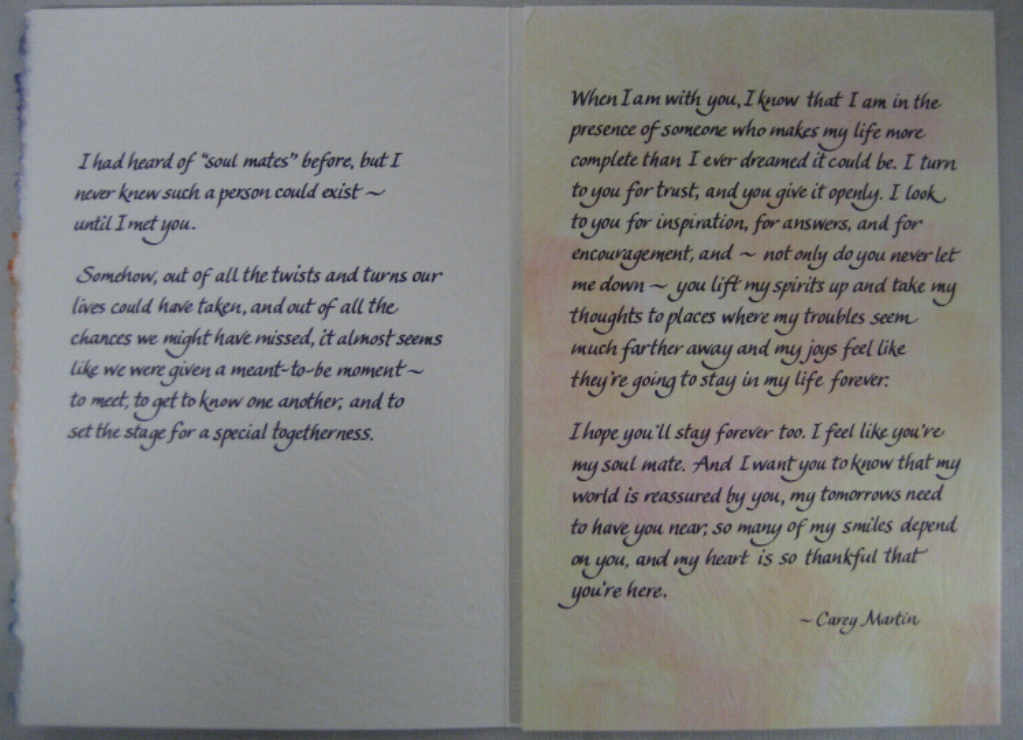 I had heard of "soul mates" before, but I
never knew such a person could exist ~
until I met you.
Somehow, out of all the twists and turns our
lives could have taken, and out of all the
chances we might have missed, it almost seems
like we were given a meant-to-be moment ~
to meet, to get to know one another, and to
set the stage for a special togetherness.
When I am with you, I know that I am in the
presence of someone who makes my life more
complete than I ever dreamed it could be. I turn
to you for trust, and you give it openly. I look
to you for inspiration, for answers, and for
encouragement, and ~ not only do you never let
me down ~ you lift my spirits up and take my
thoughts to places where my troubles seem
much farther away and my joys feel like
they're going to stay in my life forever.
I hope you'll stay forever too. I feel like you're
my soul mate. And I want you to know that my
world is reassured by you, my tomorrows need
to have you near, so many of my smiles depend
on you, and my heart is so thankful that
you're here.
~ Carey Martin